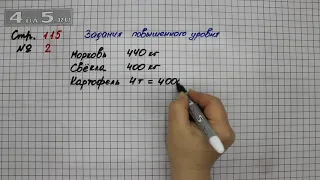 4 на 5.ru
Стр. 115 Задания повышенного уровня
№ 2
Морковь 440 кг
Свёкла 400 кг
Картофель 4т = 400